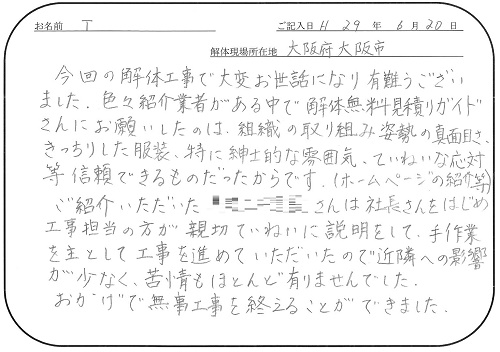 お名前 T ご記入日 H 29 年 6 月 20 日
解体現場所在地 大阪府大阪市
今回の解体工事で大変お世話になり有難うござい
ました。色々紹介業者がある中で解体無料見積りガイド
さんにお願いしたのは、組織の取り組み姿勢の真面目さ、
きっちりした服装、特に紳士的な雰囲気、ていねいな応対
等信頼できるものだったからです。(ホームページの紹介等)
ご紹介いただいた さんは社長さんをはじめ
工事担当の方が親切ていねいに説明をして、手作業
を主として工事を進めていただいたので近隣への影響
が少なく、苦情もほとんど有りませんでした。
おかげで無事工事を終えることができました。